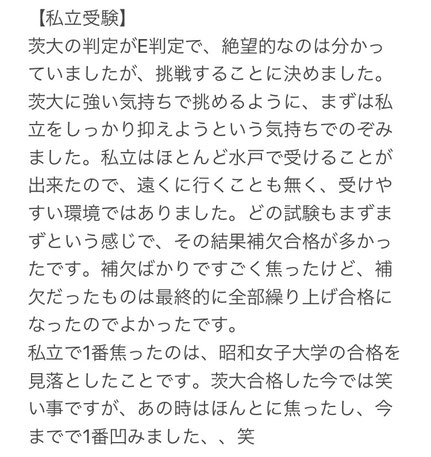 【私立受験】
茨大の判定がE判定で、絶望的なのは分かっ
ていましたが、挑戦することに決めました。
茨大に強い気持ちで挑めるように、まずは私
立をしっかり抑えようという気持ちでのぞみ
ました。私立はほとんど水戸で受けることが
出来たので、遠くに行くことも無く、受けや
すい環境ではありました。どの試験もまずま
ずという感じで、その結果補欠合格が多かっ
たです。補欠ばかりですごく焦ったけど、補
欠だったものは最終的に全部繰り上げ合格に
なったのでよかったです。
私立で1番焦ったのは、昭和女子大学の合格を
見落としたことです。茨大合格した今では笑
い事ですが、あの時はほんとに焦ったし、今
までで1番凹みました、、笑